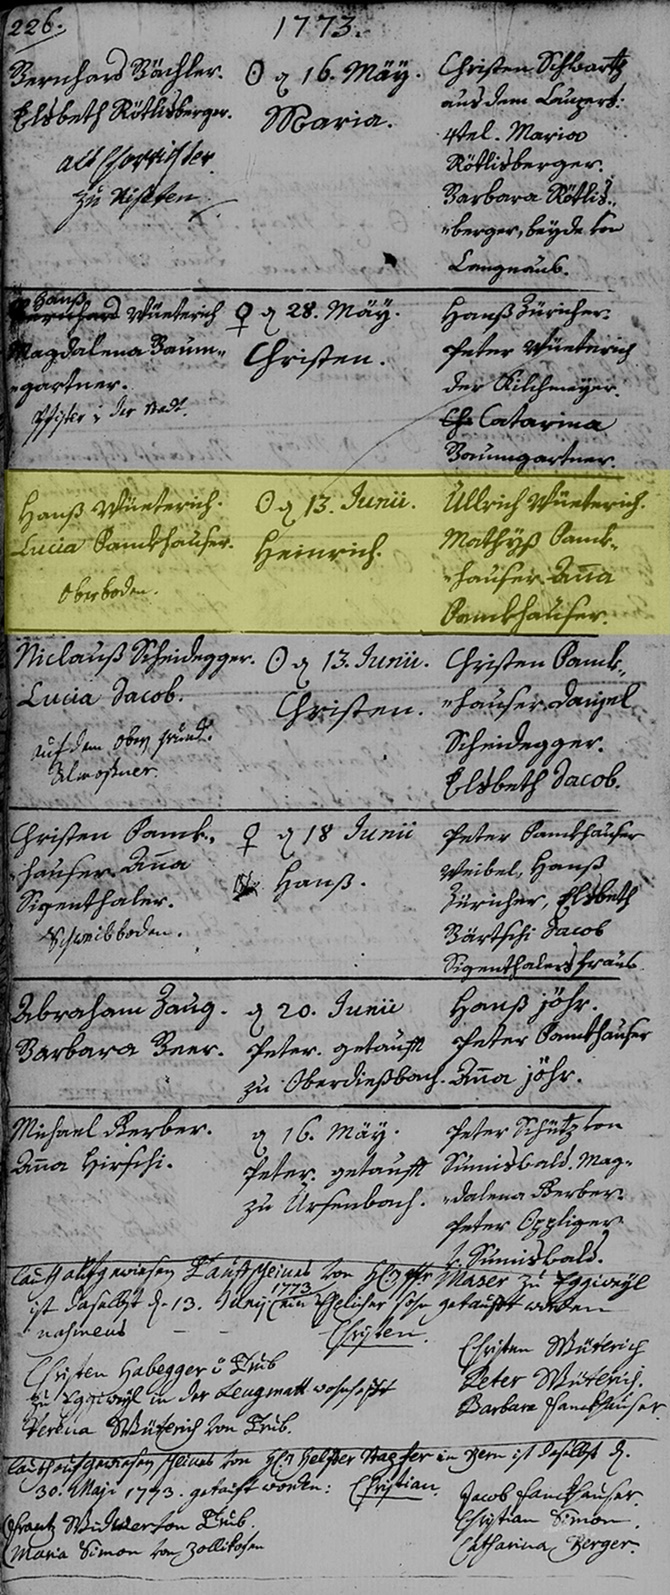 226.
1773.
Bernhard Bächler.
Elsbeth Rötlisberger.
alt Chorrichter
zu
⊙ d 16. Mäÿ.
Maria.
Christen Schwartz
aus dem Laupers:
4tel. Maria
Rötlisberger.
Barbara Rötlis„
„berger, beyde von
Langnäuw.
Hanß
Bernhard Wüeterich
Magdalena Baum„
„gartner.
Pfister in der
♀ d 28. Mäÿ.
Christen.
Hanß Züricher.
Peter Wüeterich
der Kilchmeyer.
Catarina
Baumgartner.
Hanß Wüeterich.
Lucia Fanckhauser.
Oberboden.
⊙ d 13. Junii.
Heinrich.
Ullrich Wüeterich.
Mathÿß Fanck„
„hauser Aña
Fanckhauser.
Niclauß Scheidegger.
Lucia Jacob.
auf dem Obern Grund.
Almoßner.
⊙ d 13. Junii.
Christen.
Christen Fanck„
„hauser Daniel
Scheidegger.
Elsbeth Jacob.
Christen Fanck„
„hauser Aña
Sigenthaler.
Schweibboden.
♀ d 18 Junii
Hanß.
Peter Fanckhauser
Weibel, Hanß
Züricher, Elsbeth
Bärtschi Jacob
Sigenthalers frauw.
Abraham Zaug.
Barbara Beer.
d 20. Junii
Peter. getaufft
zu Oberdießbach.
Hanß jöhr.
Peter Fanckhauser
Aña jöhr.
Michael Gerber.
Aña Hirschi.
d 16. Mäÿ.
Peter. getaufft
zu Ursenbach.
Peter Schütz von
Sumiswald. Mag„
„dalena Gerber
Peter Oppliger
v. Sumiswald.
Laut aufgewiesen Taufscheines von Maser zu Eggiweyl
1773
ist daselbst d. 13. Junij ein Ehelicher sohn getaufft worden
nahmens Christen.
Christen Habegger v Trub
zu Eggiweyl in der Leugmatt wohnhafft
Verena Wüterich von Trub.
Christen Wüterich
Peter Wüterich.
Barbara Fanckhauser.
Laut aufgewiesen scheines von Helfer Stapfer in Bern ist daselbst d.
30. Maji 1773. getauft worden: Christian.
Frantz Widmer von Trub.
Maria Simon von Zollikofen
Jacob Fanckhauser.
Christian Simon.
Catharina Berger.